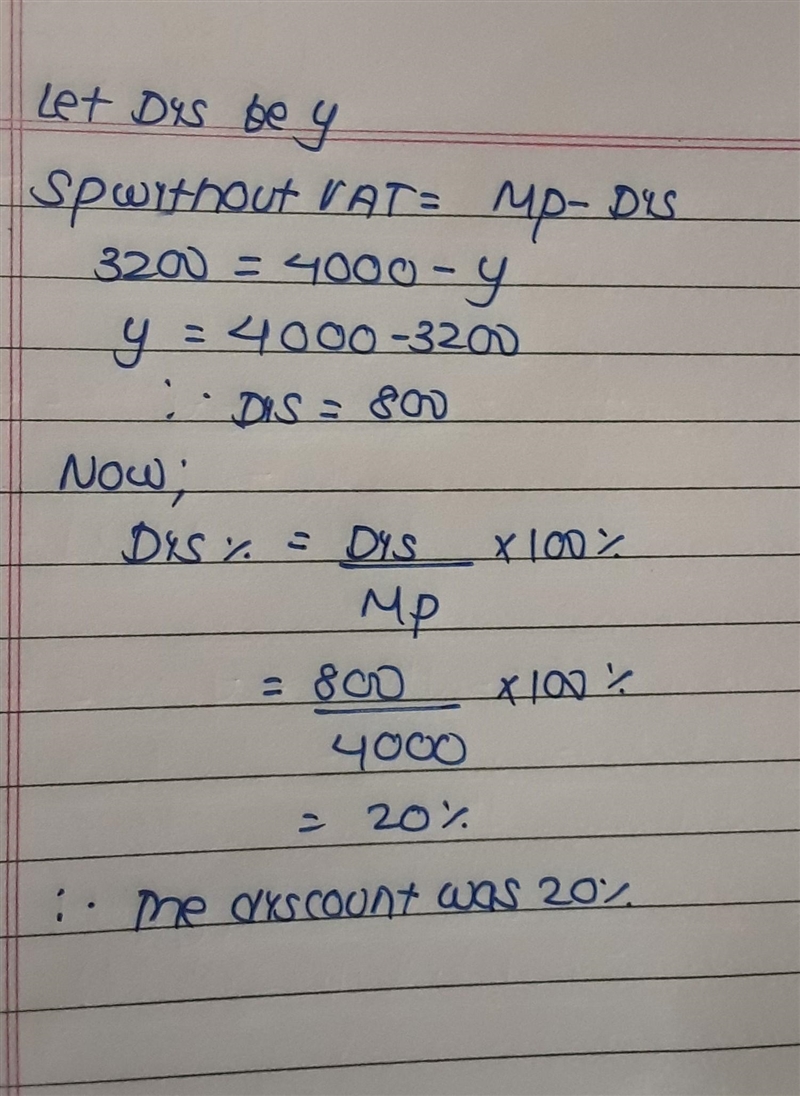 Let Dis be y
SP without VAT = MP - Dis
3200 = 4000 - y
y = 4000 - 3200
∴ Dis = 800
Now;
Dis % = Dis × 100 %
MP
= 800 × 100 %
4000
= 20 %
∴ The discount was 20%